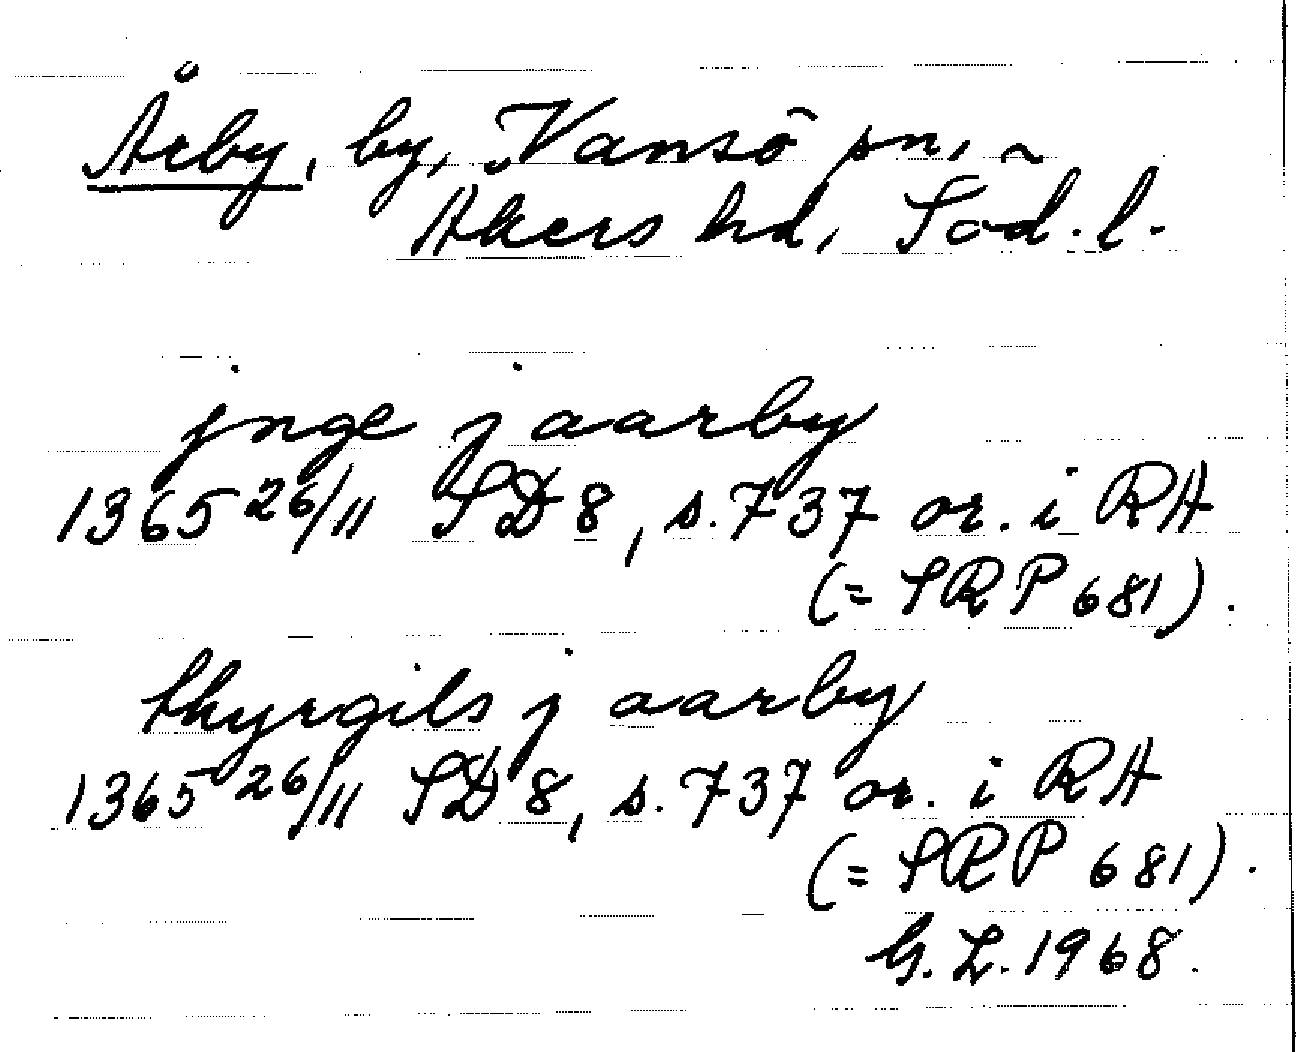 Årby, by, Vansö sn,
Åkers hd, Söd.l.
jnge j aarby
1365 26/11 SD 8, s. 737 or. i RA
(= SRP 681).
thyrgils j aarby
1365 26/11 SD 8, s. 737 or. i RA
(= SRP 681).
G. L. 1968.